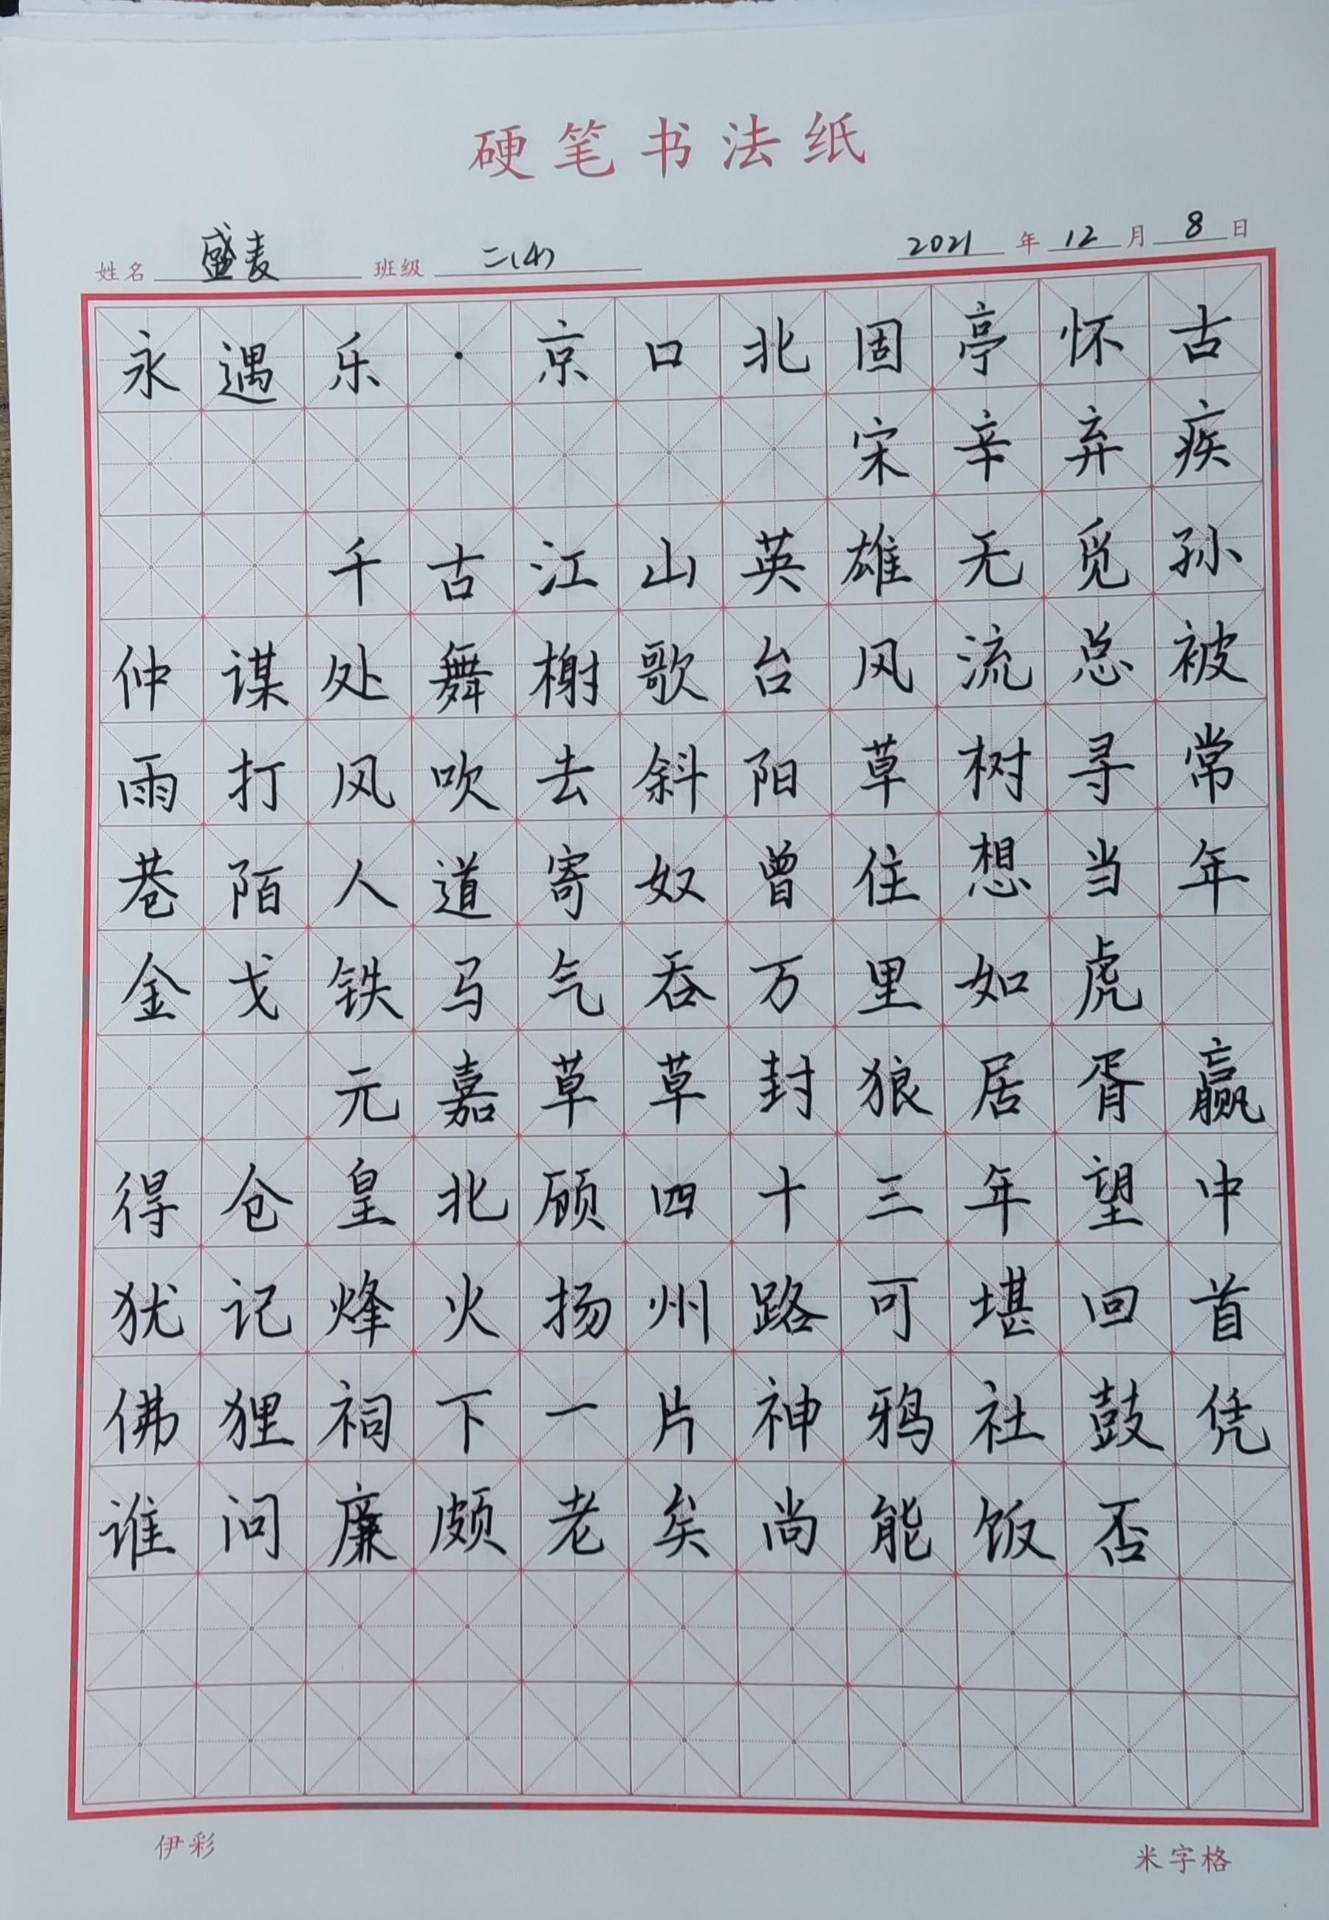 硬笔书法纸
姓名 盛麦 班级 二(4) 2021 年 12 月 8 日
永遇乐·京口北固亭怀古
宋辛弃疾
千古江山英雄无觅孙
仲谋处舞榭歌台风流总被
雨打风吹去斜阳草树寻常
巷陌人道寄奴曾住想当年
金戈铁马气吞万里如虎
元嘉草草封狼居胥赢
得仓皇北顾四十三年望中
犹记烽火扬州路可堪回首
佛狸祠下一片神鸦社鼓凭
谁问廉颇老矣尚能饭否
伊彩
米字格